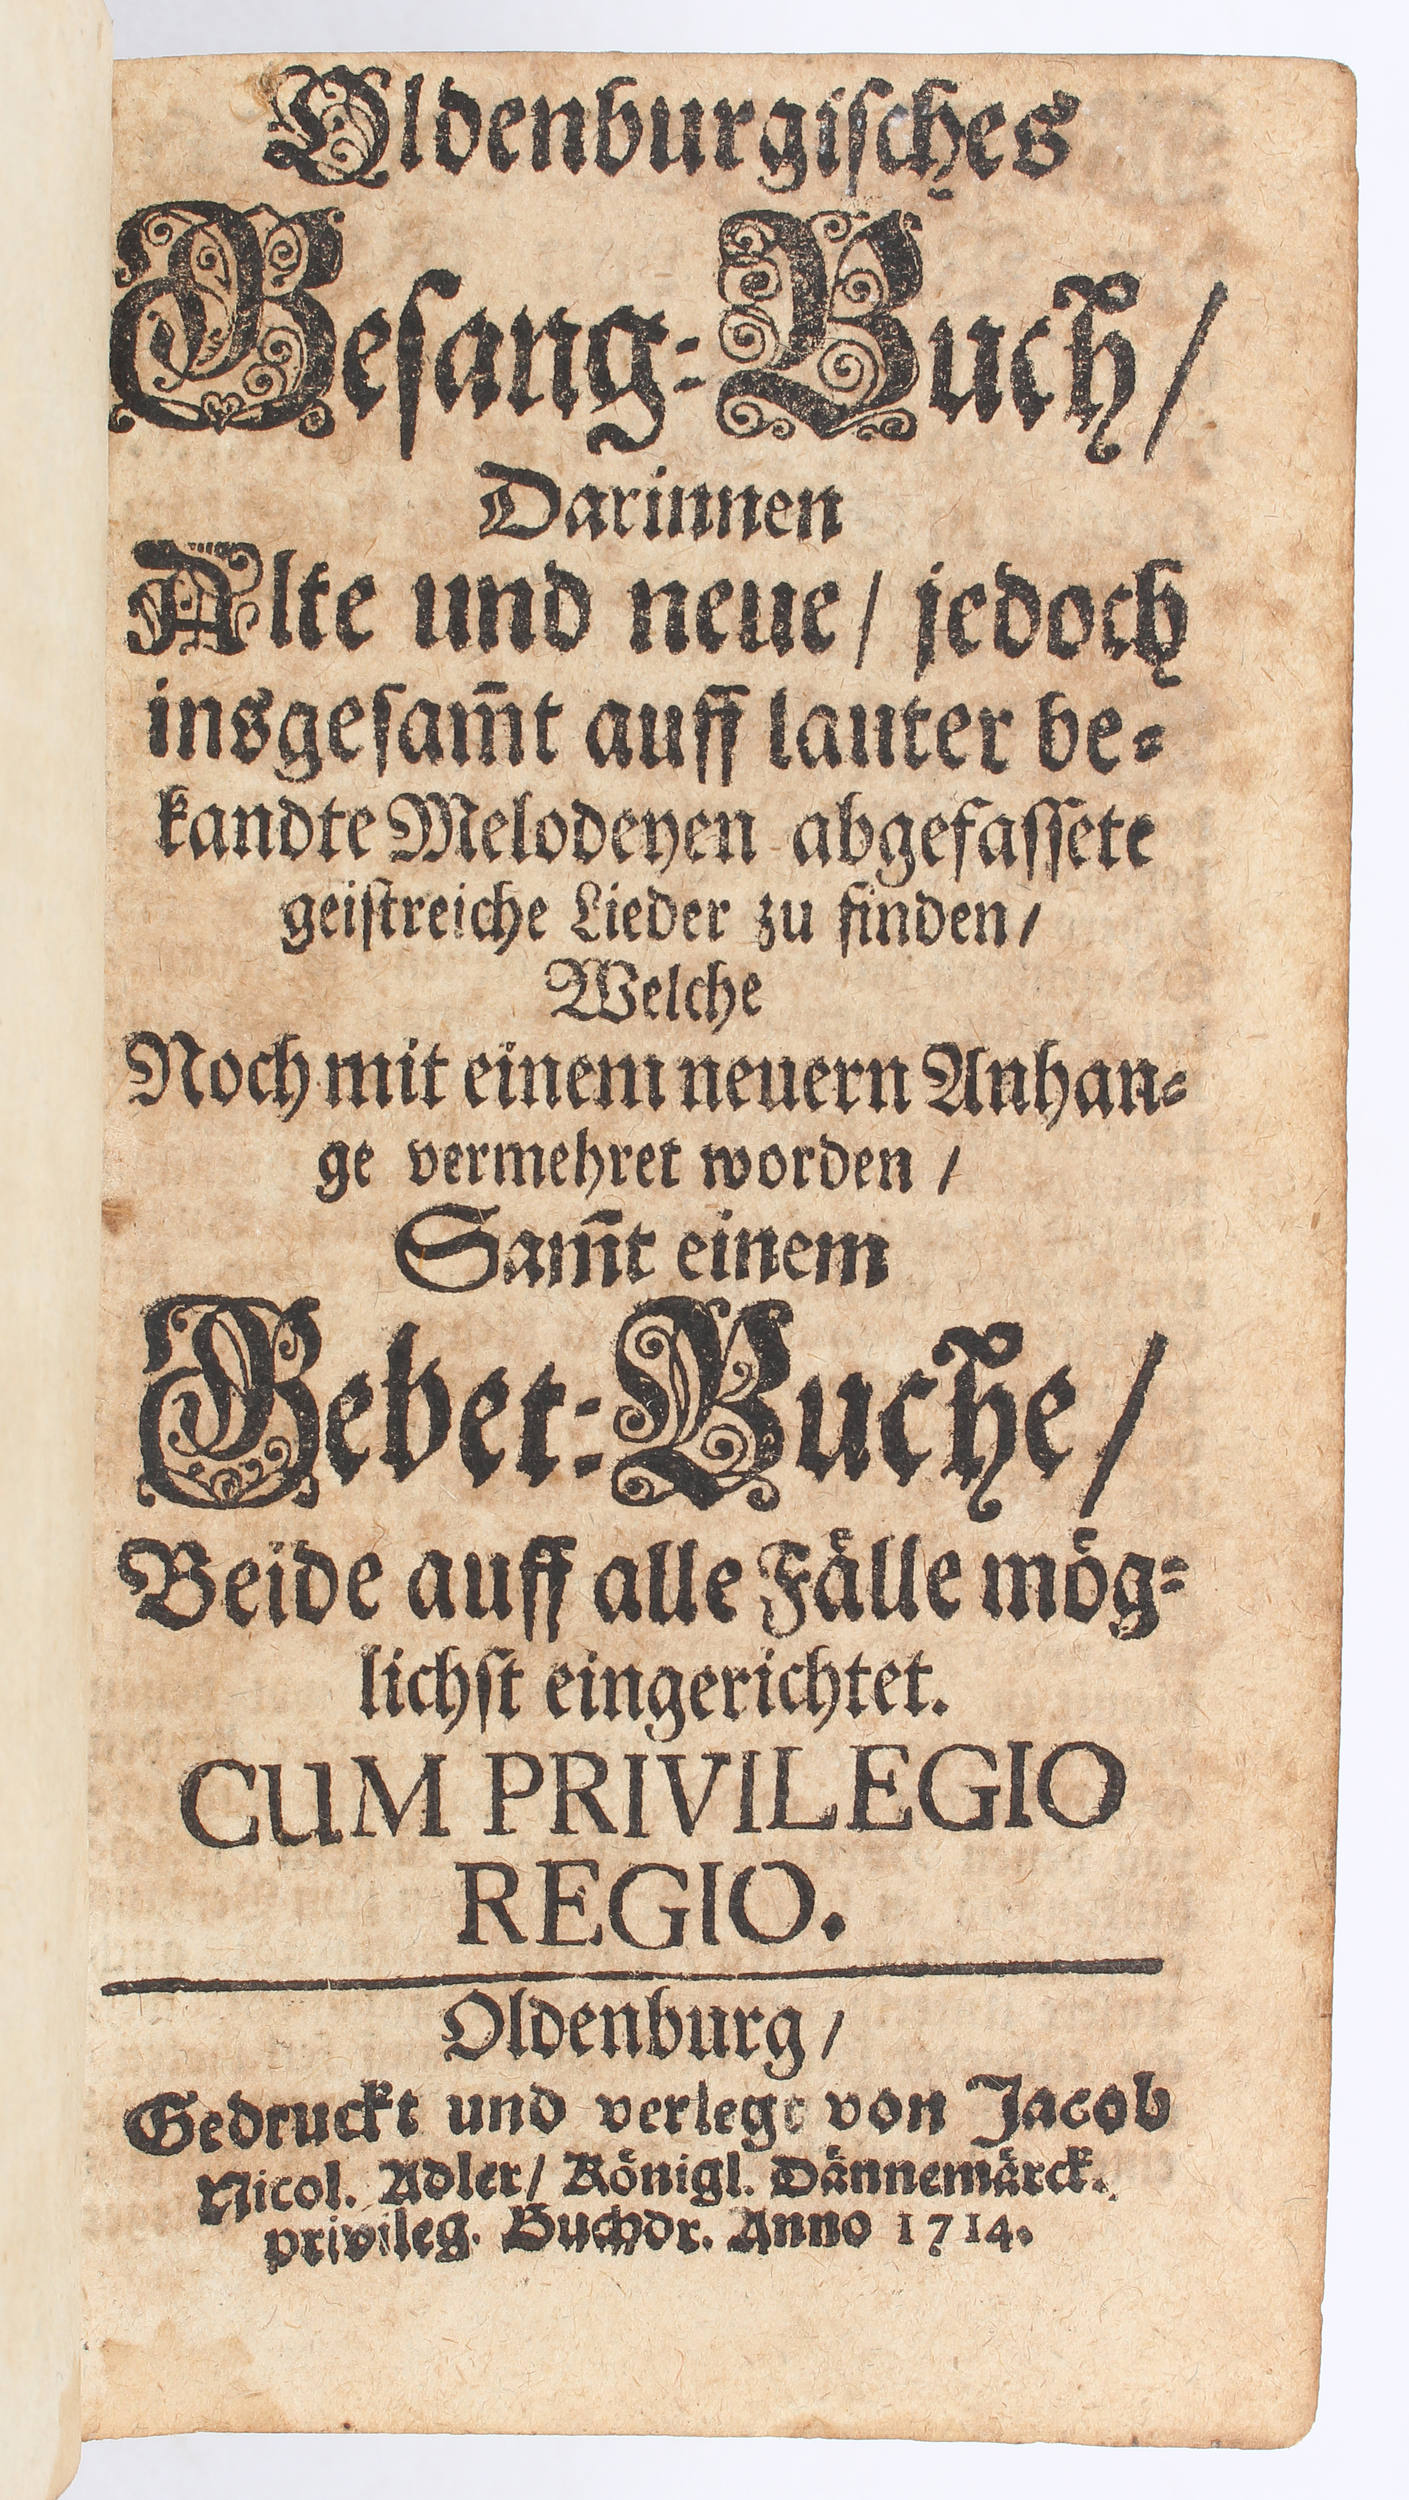 Oldenburgisches
Gesang-Buch/
Darinnen
Alte und neue/ jedoch
insgesam̄t auff lauter be-
kandte Melodeyen abgefassete
geistreiche Lieder zu finden/
Welche
Noch mit einem neuern Anhan-
ge vermehret worden/
Sam̄t einem
Gebet-Buche/
Beide auff alle Fälle mög-
lichst eingerichtet.
CUM PRIVILEGIO
REGIO.
Oldenburg/
Gedruckt und verlegt von Jacob
Nicol. Adler/ Königl. Dännemärck.
privileg. Buchdr. Anno 1714.